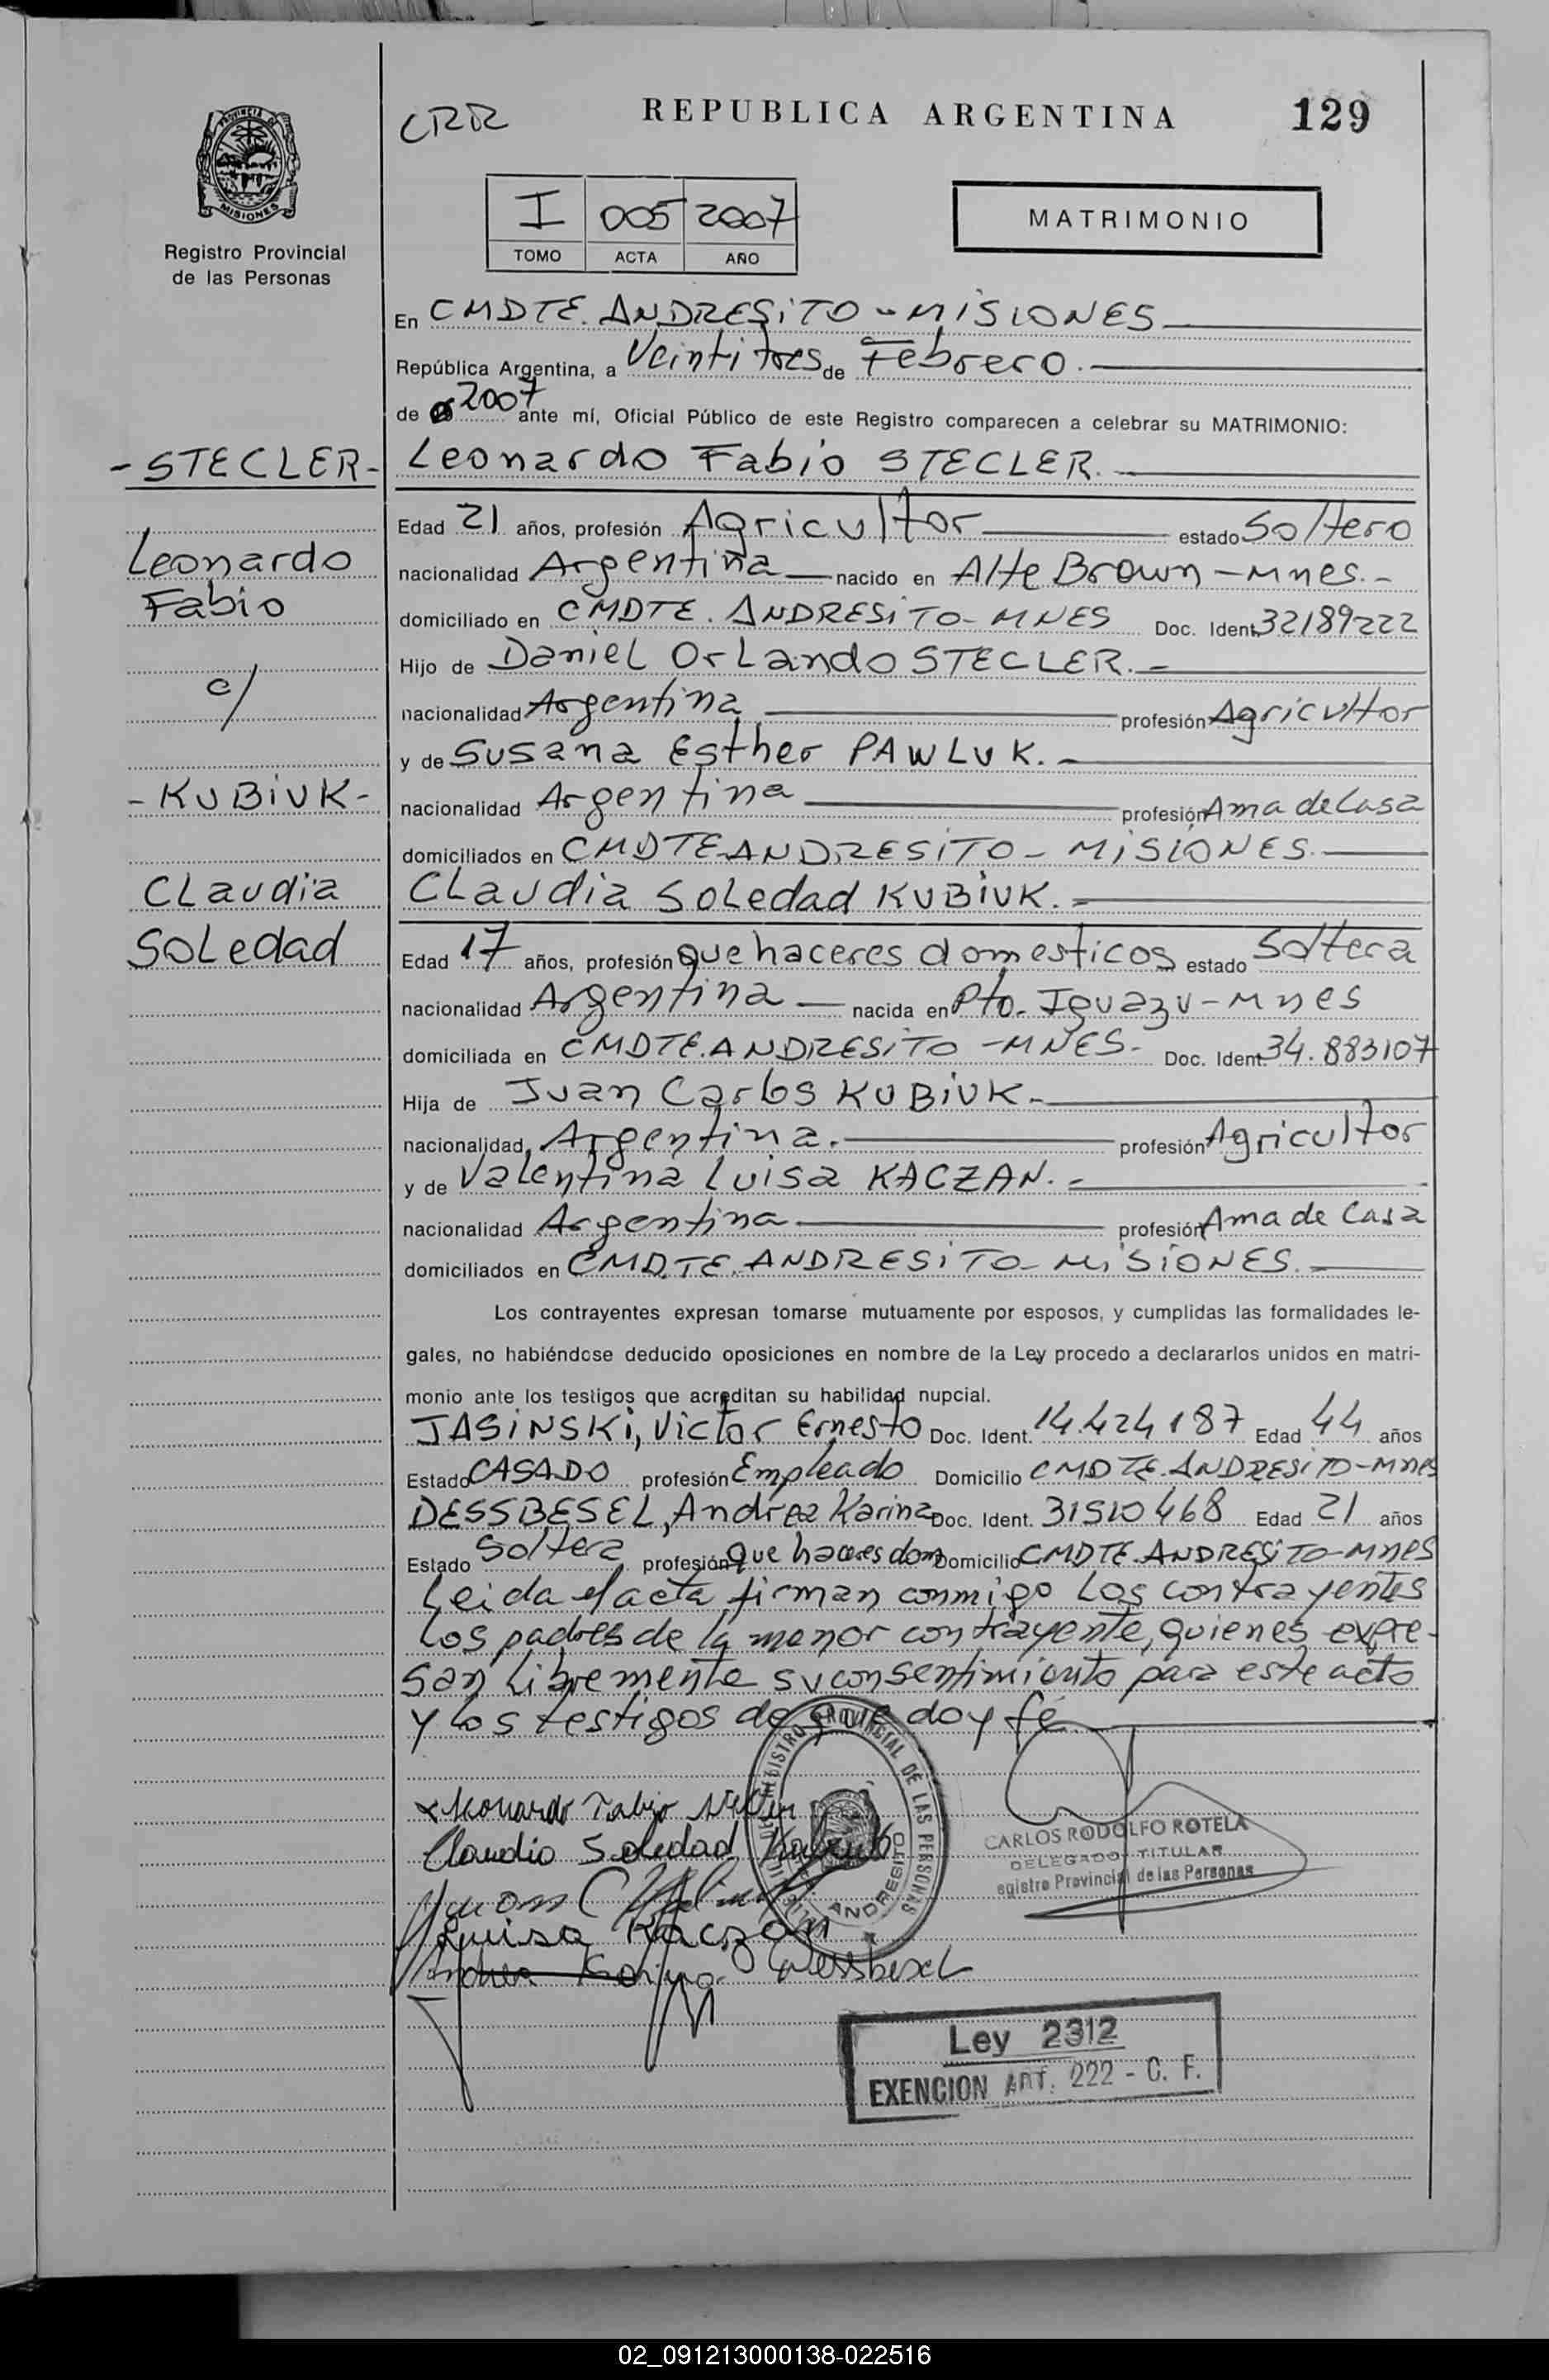 CRR
REPUBLICA ARGENTINA
129
PROVINCIA DE MISIONES
Registro Provincial
de las Personas
I 005 2007
TOMO ACTA AÑO
MATRIMONIO
En CMDTE. ANDRESiTO - MiSIONES
República Argentina, a Veintitres de Febrero.
de 2007 ante mí, Oficial Público de este Registro comparecen a celebrar su MATRIMONIO:
- STECLER -
Leonardo Fabio STECLER.
Edad 21 años, profesión Agricultor estado Soltero
Leonardo
nacionalidad Argentina nacido en Alte Brown - Mnes. -
Fabio
domiciliado en CMDTE. ANDRESiTO - MNES Doc. Ident. 32189222
Hijo de Daniel Orlando STECLER. -
c/
nacionalidad Argentina profesión Agricultor
y de Susana Esther PAWLUK. -
- KUBiUK -
nacionalidad Argentina profesión Ama de Casa
domiciliados en CMDTE ANDRESiTO - MiSIONES.
Claudia
Claudia Soledad KUBiUK. -
Soledad
Edad 17 años, profesión que haceres domesticos estado Soltera
nacionalidad Argentina nacida en Pto. Iguazu - Mnes
domiciliada en CMDTE. ANDRESiTO - MNES - Doc. Ident. 34.883107
Hija de Juan Carlos KUBiUK. -
nacionalidad Argentina. profesión Agricultor
y de Valentina Luisa KACZAN. -
nacionalidad Argentina profesión Ama de Casa
domiciliados en CMDTE. ANDRESiTO - MiSiONES.
Los contrayentes expresan tomarse mutuamente por esposos, y cumplidas las formalidades le-
gales, no habiéndose deducido oposiciones en nombre de la Ley procedo a declararlos unidos en matri-
monio ante los testigos que acreditan su habilidad nupcial.
JASiNSKi, Victor Ernesto Doc. Ident. 14.424187 Edad 44 años
Estado CASADO profesión Empleado Domicilio CMDTE. ANDRESiTO - Mnes
DESSBESEL, Andrea Karina Doc. Ident. 31510468 Edad 21 años
Estado Soltera profesión que haceres dom Domicilio CMDTE. ANDRESiTO - Mnes
Leida el acta firman conmigo los contrayentes
los padres de la menor contrayente, quienes expre-
san libremente su consentimiento para este acto
y los testigos de que doy fé.
REGISTRO PROVINCIAL DE LAS PERSONAS
ANDRESITO
x Leonardo Fabio
Claudia Soledad
CARLOS RODOLFO ROTELA
DELEGADO TITULAR
egistro Provincial de las Personas
Luisa Kaczan
Andrea Karina Dessbesel
Ley 2312
EXENCION ART. 222 - C. F.
02_091213000138-022516